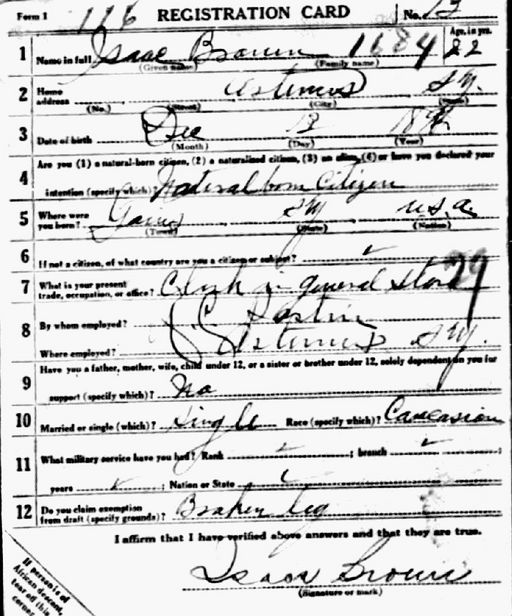 Form 1 116 REGISTRATION CARD No. 13
1 Name in full Isaac Brown 1684 Age, in yrs. 22
(Given name) (Family name)
2 Home address Artemus Ky.
(No.) (Street) (City) (State)
3 Date of birth Dec 13
(Month) (Day) (Year)
Are you (1) a natural-born citizen, (2) a naturalized citizen, (3) an alien, (4) or have you declared your
4 intention (specify which)? Natural born Citizen
5 Where were you born? Ky U.S.A.
(Town) (State) (Nation)
6 If not a citizen, of what country are you a citizen or subject?
7 What is your present trade, occupation, or office? Clerk in general store 29
8 By whom employed?
Where employed? Artemus Ky.
Have you a father, mother, wife, child under 12, or a sister or brother under 12, solely dependent on you for
9 support (specify which)? No
10 Married or single (which)? Single Race (specify which)? Caucasion
11 What military service have you had? Rank ; branch ;
years ; Nation or State
12 Do you claim exemption from draft (specify grounds)? Broken leg
I affirm that I have verified above answers and that they are true.
Isaac Brown
(Signature or mark)
If person is of
African descent,
tear off this
corner.